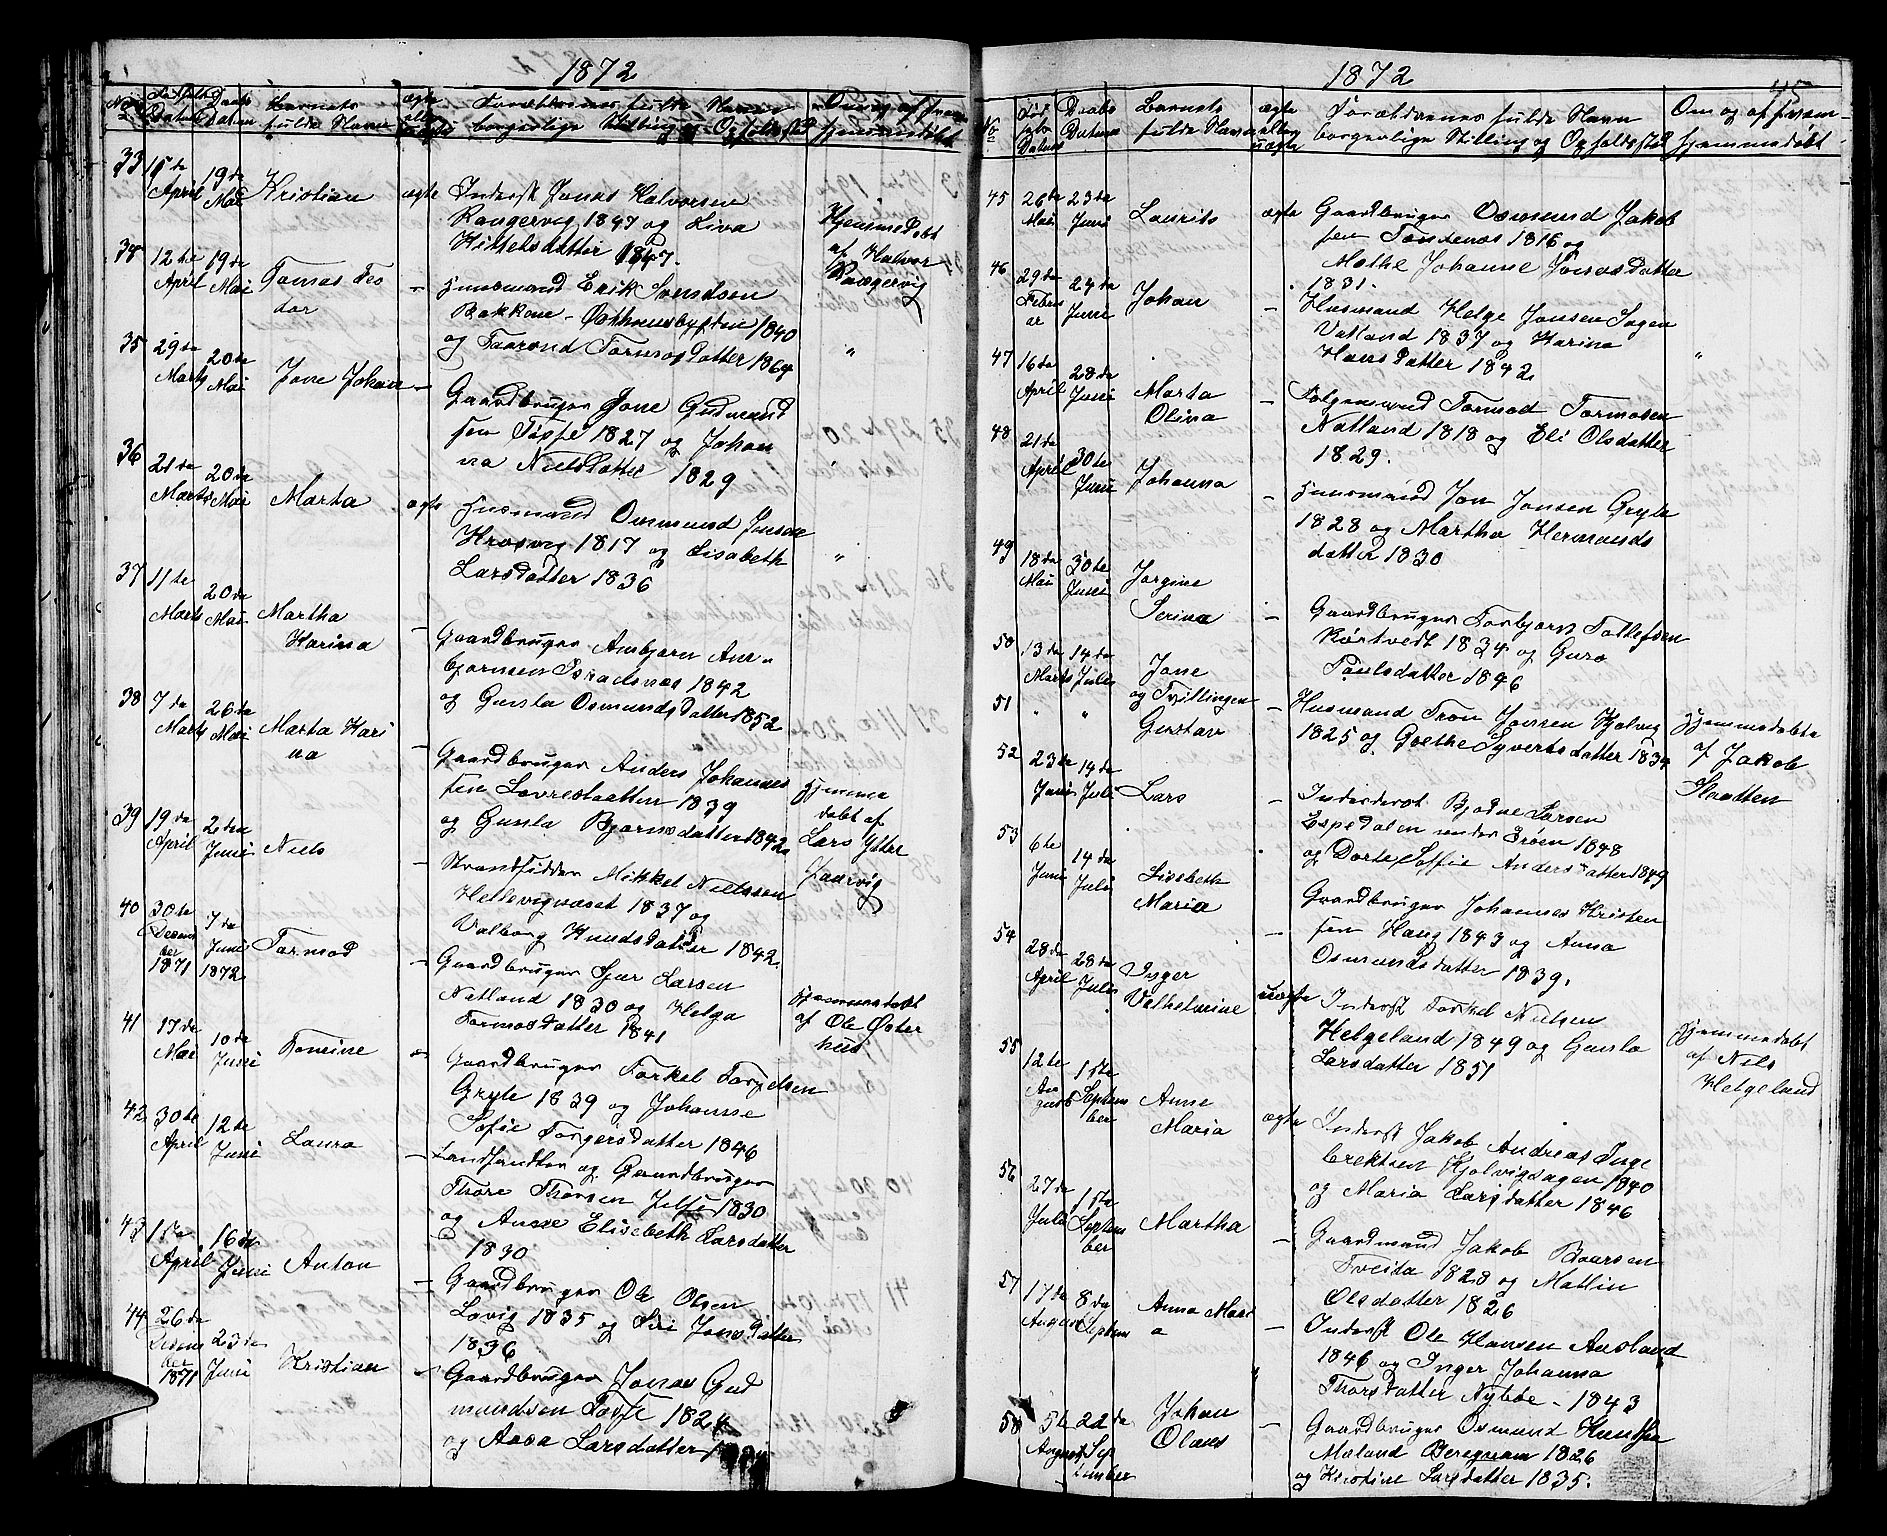 1872
No
Fødsels
Datum
Daabs
Datum
Barnets
fulde Navn
ægte
eller
uægte
Forældrenes fulde Navn
borgerlige Stilling og Opholdssted
Om og af hvem
hjemmedøbt
33 15de April 19de Mai Kristian ægte Inderst Jonas Halvorsen
Raugervig 1847 og Siva
Kittelsdatter 1847.
Hjemmedøbt
af Halvor
Raugervig
34 12te April 19de Mai Tomas Teo
dor – Huusmand Erik Svendsen
Bakkene – Østhuusbygden 1840
og Taarond Tormosdatter 1864
35 29de Marts 20de Mai Jone Johan – Gaardbruger Jone Gudmund
sen Tøsse 1827 og Johan
na Nielsdatter 1829
"
36 21de Marts 20de Mai Marta ægte Huusmand Osmund Jensen
Krosvig 1817 og Lisabeth
Larsdatter 1836
"
37 11te Marts 20de Mai Martha
Karina – Gaardbruger Anbjørn An-
bjørnsen 1842
og Gunla Osmundsdatter 1852
38 7da Marts 26da Mai Marta Kari
na – Gaardbruger Anders Johannes
sen Lovrestadtten 1839
og Gunla Bjørnsdatter 1842
Hjemme
døbt af
Lars Ytre
Faarvig
39 19da April 2den Juni Niels – Strandsidder Mikkel Nielssen
Hellevignæset 1837 og
Valborg Knudsdatter 1842.
40 30te Decem
ber
1871 7da Juni
1872 Tormod – Gaardbruger Sjur Larsen
Natland 1830 og Helga
Tormosdatter 1841
Hjemmedøbt
af Ole Øster
hus
41 17da Mai 10da Juni Tomine Gaardbruger Torkel Torgelsen
Gryte 1839 og Johanne
Sofie Torgersdatter 1846
42 30te April 12te Juni Laura – Landhandler og Gaardbruger
Thore Thorsen Jelse 1830
og Anne Elisebeth Larsdatter
1830
43 1ste April 16de Juni Anton – Gaardbruger Ole Olsen
Lovig 1835 og Siri Jonsdatter
1836
44 26da Decem
ber
1871 23da Juni Kristian – Gaardbruger Jonas Gud
mundsen Tosse 1824
og Aasa Larsdatter
1872
45
No
Fød
sels
Datum
Daabs
Datum
Barnets
fulde Navn
ægte
eller
uægte
Forældrenes fulde Navn
borgerlige Stilling og Opholdssted
Om og af hvem
hjemmedøbt
45 26da Mai 23da Juni Laurits ægte Gaardbruger Osmund Jakob
sen Tondenæs 1816 og
Mathe Johanne Jonasdatter
1831.
46 29da Febru
ar 24da Juni Johan – Husmand Helge Jonsen Sagen
Vatland 1837 og Karina
Hansdatter 1842
"
47 16da April 28da Juni Marta
Olina – Folgemand Tormod Tormosen
Natland 1818 og Eli Olsdatter
1829.
48 21da April 30te Juni Johanna – Huusmand Jon Jonsen Gryte
1828 og Martha Hermunds
datter 1830
49 18da Mai 30te Juni Jorgine
Serina – Gaardbruger Torbjorn Tollefsen
Kørtvedt 1834 og Guro
Poulsdatter 1846
50 13da Marts 14da Juli Jone
og Tvillingen
51 " " Gustav – Husmand Tron Jonsen Hjolvig
1825 og Grethe Syvertsdatter 1834
Hjemmedøbte
af Jakob
Slaatten
52 23da Juni 14da Juli Lars – Inderst Bjodne Larsen
Espedalen under Erøen 1848
og Dorte Soffie Andersdatter 1849
53 6te Juni 14da Juli Lisebeth
Maria – Gaardbruger Johannes Kristen
sen Haug 1843 og Anna
Osmundsdatter 1839.
54 28da April 28da Juli Inger
Valhelmine uægte Inderst Torkel Nielsen
Helgeland 1849 og Gunla
Larsdatter 1851
Hjemmedøbt
af Niels
Helgeland
55 12te Au
gust 1ste Septem
ber Anne
Maria ægte Inderst Jakob Andreas Inge
brektsen Hjolvigsagen 1840
og Maria Larsdatter 1846
56 27da Juli 1ste Septem
ber Martha – Gaardmand Jakob Baarsen
Tveita 1823 og Matlin
Olsdatter 1826
57 17da August 8da Septem Anna Mari
a – Inderst Ole Hansen Aasland
1846 og Inger Johanna
Thorsdatter Nybbe – 1843
"
58 5te August 22da Sep
tember Johan
Olaus – Gaardbruger Osmund Knudsen
Moland Beregnam 1826
og Kristine Larsdatter 1835.